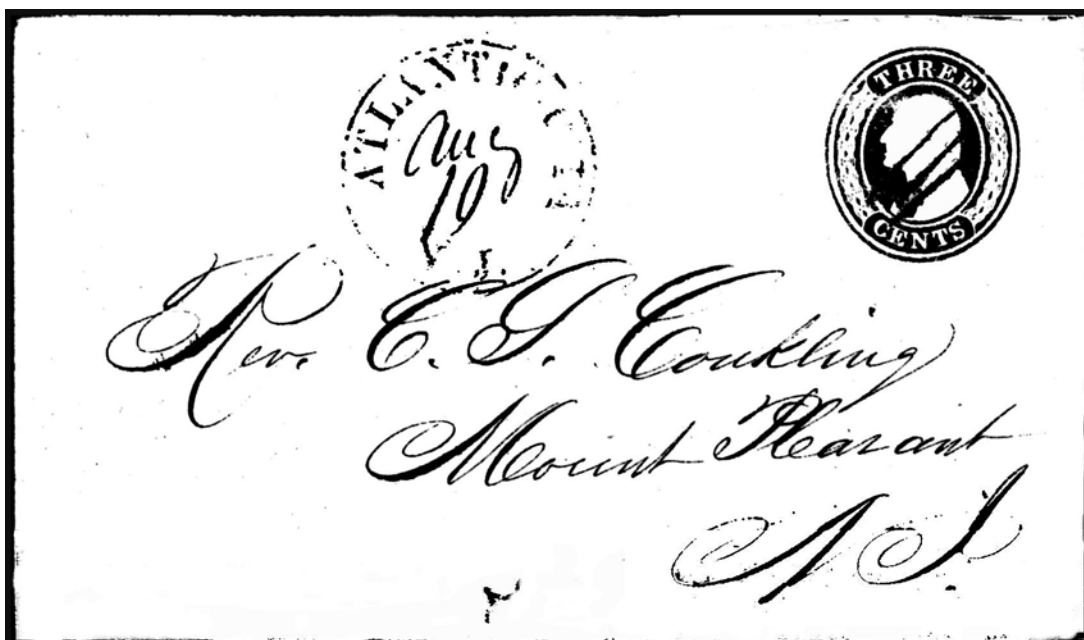 ATLANTIC
Aug
10
THREE
CENTS
Rev. C. S. Conkling
Mount Pleasant
N J.